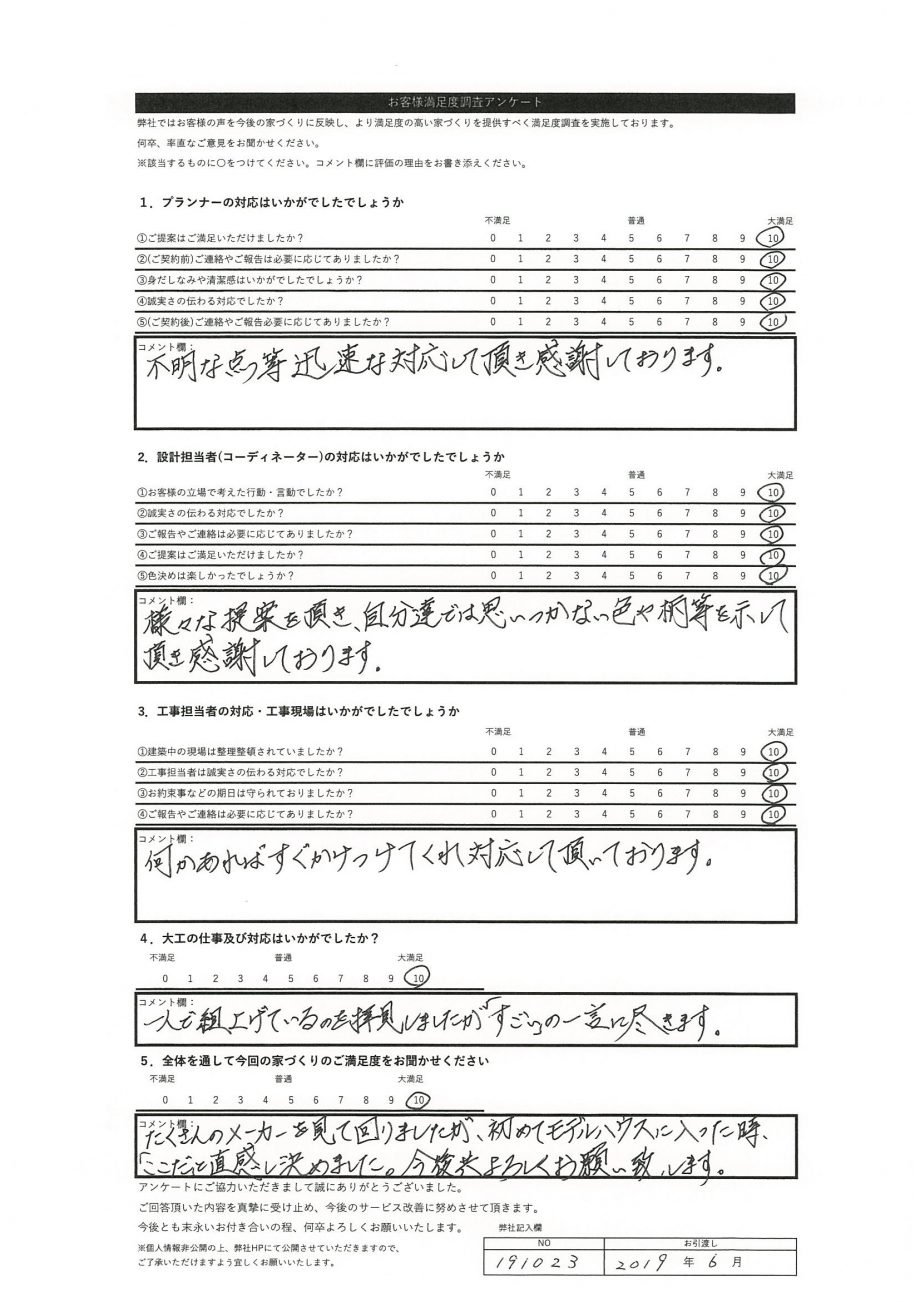 お客様満足度調査アンケート
弊社ではお客様の声を今後の家づくりに反映し、より満足度の高い家づくりを提供すべく満足度調査を実施しております。
何卒、率直なご意見をお聞かせください。
※該当するものに〇をつけてください。コメント欄に評価の理由をお書き添えください。
1．プランナーの対応はいかがでしたでしょうか
不満足 普通 大満足
①ご提案はご満足いただけましたか？ 0 1 2 3 4 5 6 7 8 9 10
②(ご契約前)ご連絡やご報告は必要に応じてありましたか？ 0 1 2 3 4 5 6 7 8 9 10
③身だしなみや清潔感はいかがでしたでしょうか？ 0 1 2 3 4 5 6 7 8 9 10
④誠実さの伝わる対応でしたか？ 0 1 2 3 4 5 6 7 8 9 10
⑤(ご契約後)ご連絡やご報告必要に応じてありましたか？ 0 1 2 3 4 5 6 7 8 9 10
コメント欄：
不明な点等迅速な対応して頂き感謝しております。
2．設計担当者(コーディネーター)の対応はいかがでしたでしょうか
不満足 普通 大満足
①お客様の立場で考えた行動・言動でしたか？ 0 1 2 3 4 5 6 7 8 9 10
②誠実さの伝わる対応でしたか？ 0 1 2 3 4 5 6 7 8 9 10
③ご報告やご連絡は必要に応じてありましたか？ 0 1 2 3 4 5 6 7 8 9 10
④ご提案はご満足いただけましたか？ 0 1 2 3 4 5 6 7 8 9 10
⑤色決めは楽しかったでしょうか？ 0 1 2 3 4 5 6 7 8 9 10
コメント欄：
様々な提案を頂き、自分達では思いつかない色や柄等を示して
頂き感謝しております。
3．工事担当者の対応・工事現場はいかがでしたでしょうか
不満足 普通 大満足
①建築中の現場は整理整頓されていましたか？ 0 1 2 3 4 5 6 7 8 9 10
②工事担当者は誠実さの伝わる対応でしたか？ 0 1 2 3 4 5 6 7 8 9 10
③お約束事などの期日は守られておりましたか？ 0 1 2 3 4 5 6 7 8 9 10
④ご報告やご連絡は必要に応じてありましたか？ 0 1 2 3 4 5 6 7 8 9 10
コメント欄：
何かあればすぐかけつけてくれ対応して頂いております。
4．大工の仕事及び対応はいかがでしたか？
不満足 普通 大満足
0 1 2 3 4 5 6 7 8 9 10
コメント欄：
一人で組上げているのを拝見しましたが「すごい」の一言に尽きます。
5．全体を通して今回の家づくりのご満足度をお聞かせください
不満足 普通 大満足
0 1 2 3 4 5 6 7 8 9 10
コメント欄：
たくさんのメーカーを見て回りましたが、初めてモデルハウスに入った時、
「ここだ」と直感し決めました。今後共よろしくお願い致します。
アンケートにご協力いただきまして誠にありがとうございました。
ご回答頂いた内容を真摯に受け止め、今後のサービス改善に努めさせて頂きます。
今後とも末永いお付き合いの程、何卒よろしくお願いいたします。
※個人情報非公開の上、弊社HPにて公開させていただきますので、
ご了承いただけますよう宜しくお願いいたします。
弊社記入欄
NO お引渡し
191023 2019年6月